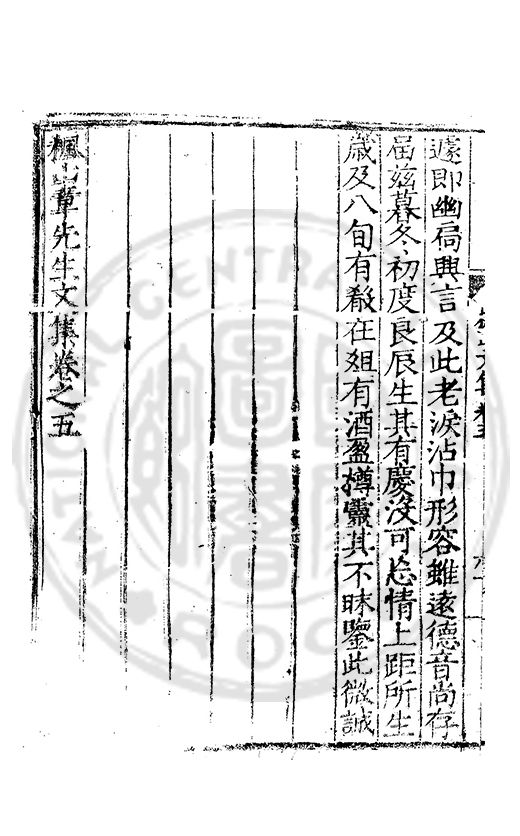 遽即幽扃興言及此老淚沾巾形容雖遠德音尚存
屆兹暮冬初度良辰生其有慶沒可忘情上距所生
歲及八旬有殽在俎有酒盈罇靈其不昧鑒此微誠
楓山章先生文集卷之五